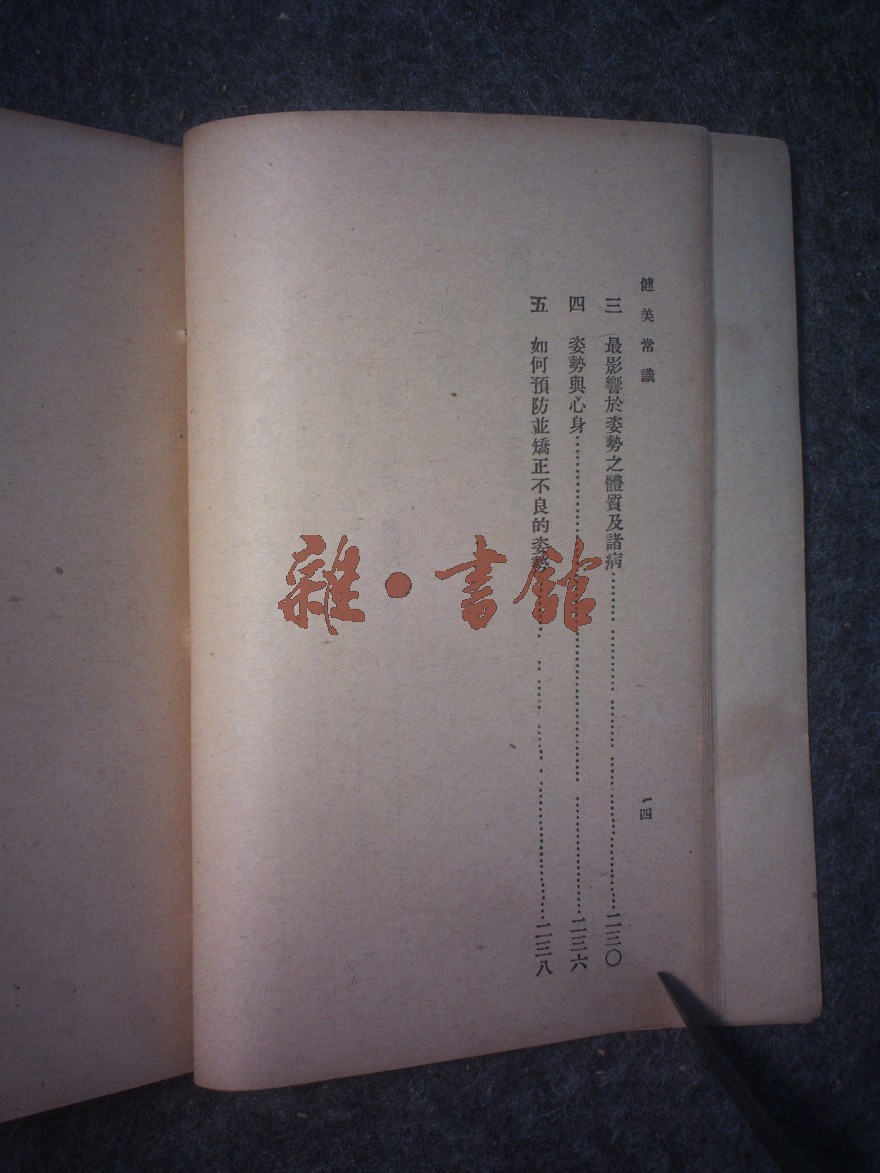 健美常識
一四
三　最影響於姿勢之體質及諸病……二三〇
四　姿勢與心身……二三六
五　如何預防並矯正不良的姿勢……二三八
雜·書館